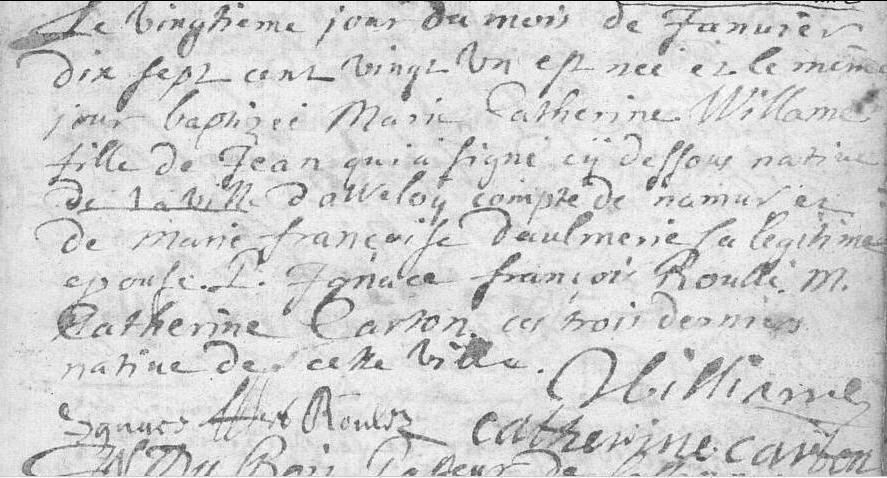 Le vingtieme jour du mois de Janvier
dix sept cent vingt un est neé et le méme
jour baptizeé Marie Catherine Willame
fille de Jean qui a signé cÿ dessous native
de la ville compté de namur et
de marie françoise daulmerie sa legitime
epouse. P. Jgnace françois Roulli. M.
Catherine Carton. ces trois derniers
native de cette ville.
Williame
Jgnace Roulez
catherine carton